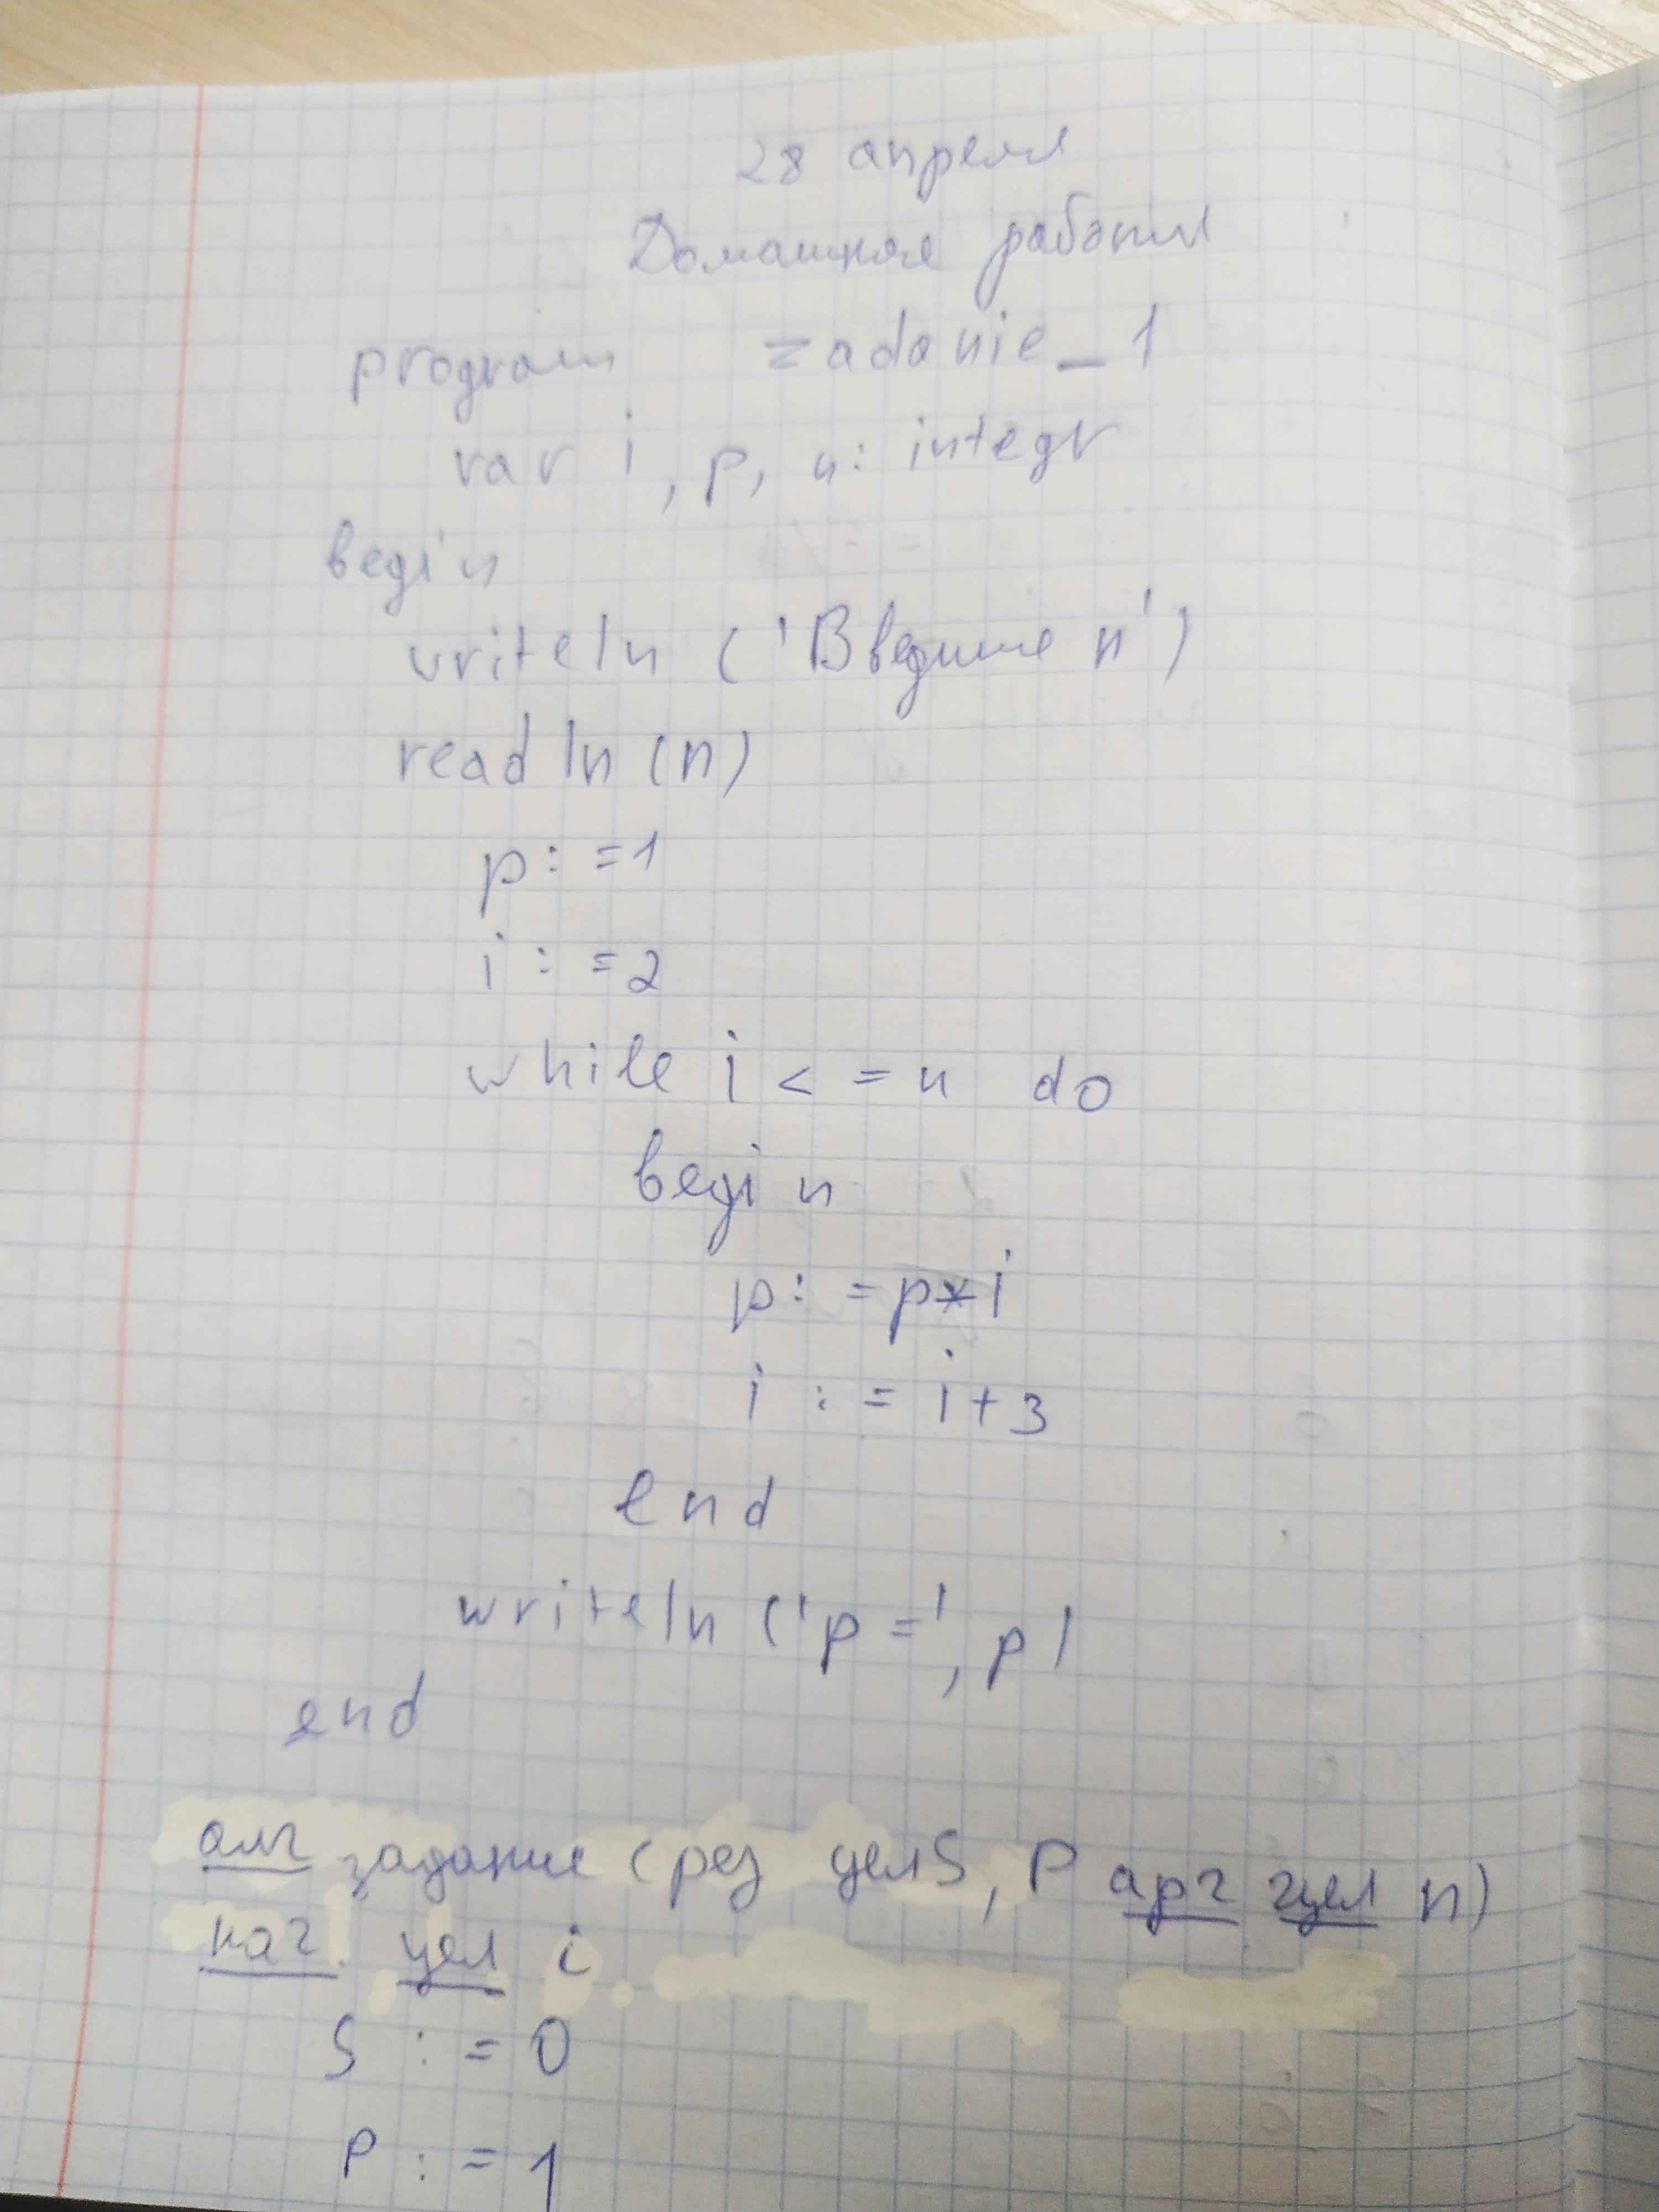 28 апреля
Домашняя работа
program zadanie_1
var i, p, n: integr
begin
writeln ('Введите n')
readln (n)
p: =1
i : =2
while i < = n do
begin
p: =p*i
i : = i+3
end
writeln ('p =', p)
end
алг задание (рез целS, P арг цел n)
нач цел i
S : = 0
P : = 1